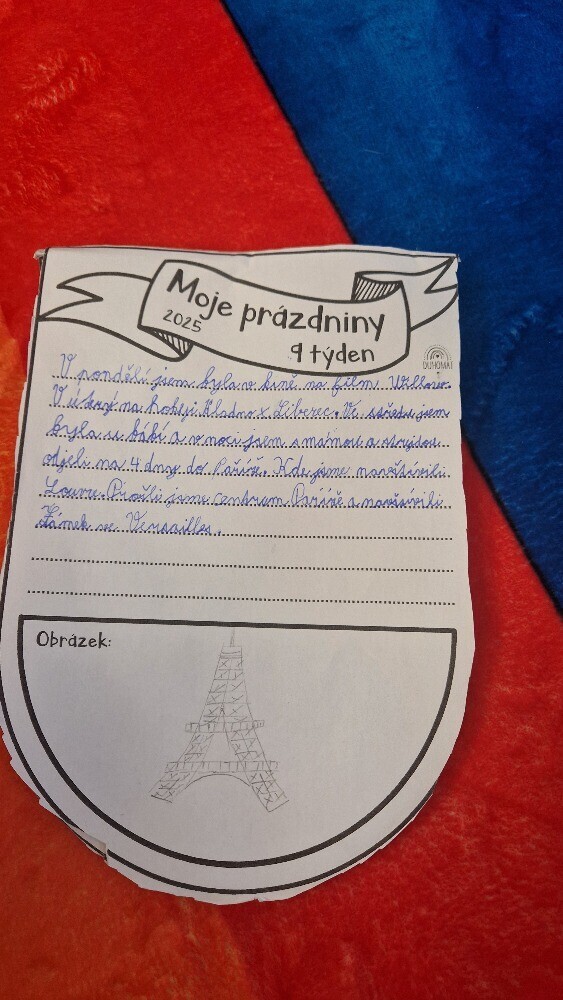 Moje prázdniny
2025
9 týden
DUHOMAT
V pondělí jsem byla v kině na film
V úterý na hokeji Kladno x Liberec. Ve středu jsem
byla u bábí a v noci jsem s mámou a strejdou
odjeli na 4 dny do Paříže. Kde jsme navštívili
Louvre. Prošli jsme centrum Paříže a navštívili
Zámek ve Versailles.
Obrázek: